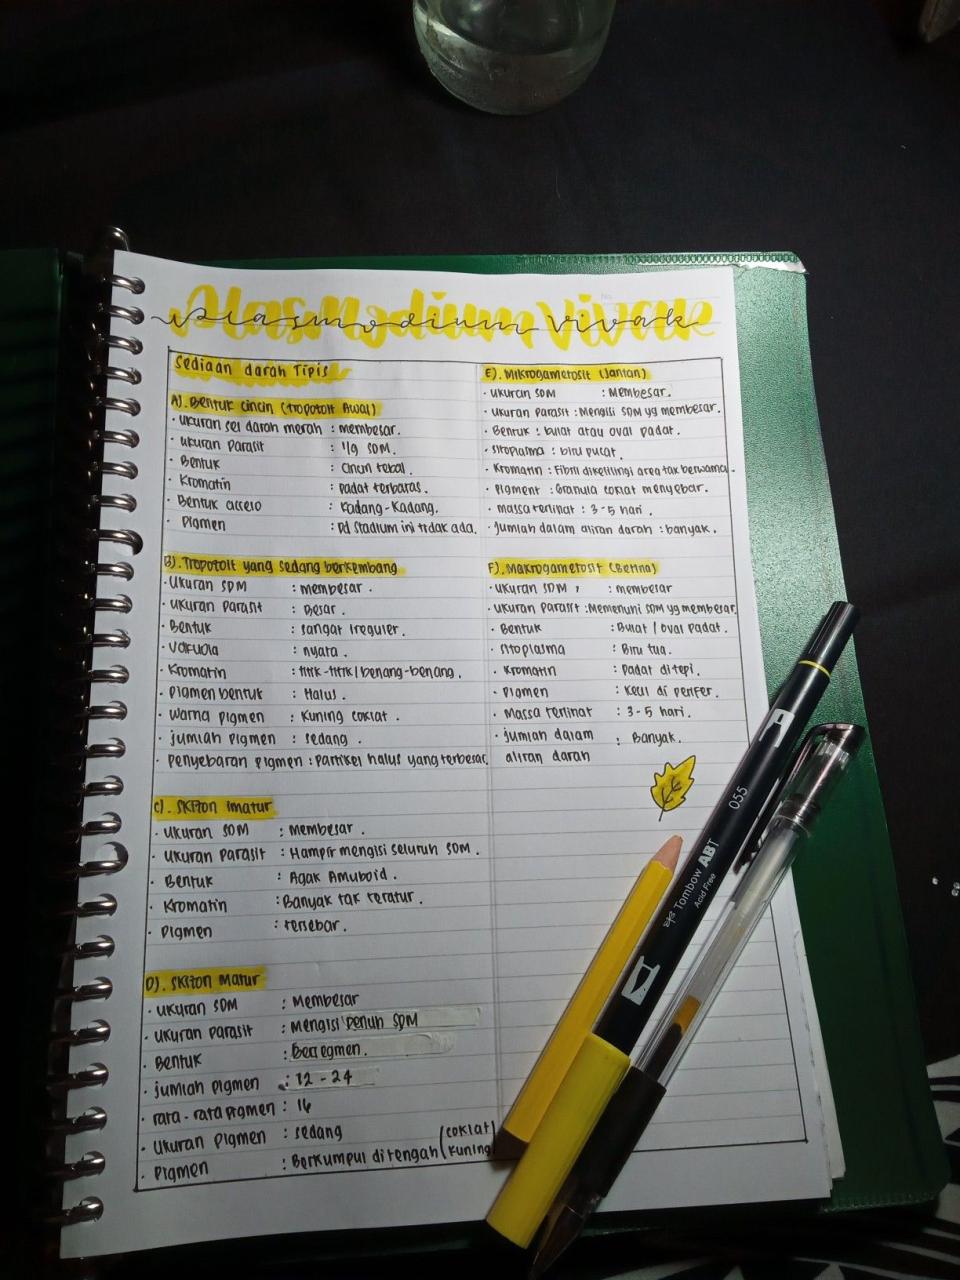 Plasmodium Vivax
plasmodium vivax
No.
Sediaan darah Tipis
A). Bentuk cincin (tropozoit Awal)
· Ukuran sel darah merah : membesar.
· Ukuran Parasit : 1/9 SDM.
· Bentuk : Cincin tebal.
· Kromatin : Padat terbatas.
· Bentuk accelo : Kadang-Kadang.
· Pigmen : Pd Stadium ini tidak ada.
B). Tropozoit yang sedang berkembang
· Ukuran SDM : membesar.
· Ukuran Parasit : Besar.
· Bentuk : sangat Ireguler.
· Vakuola : nyata.
· Kromatin : titik-titik / benang-benang.
· Pigmen bentuk : Halus.
· Warna Pigmen : Kuning coklat.
· jumlah pigmen : sedang.
· Penyebaran Pigmen : Partikel halus yang terbesar.
C). Skizon Imatur
· Ukuran SDM : Membesar.
· Ukuran Parasit : Hampir mengisi seluruh SDM.
· Bentuk : Agak Amuboid.
· Kromatin : Banyak tak teratur.
· Pigmen : tersebar.
D). Skizon Matur
· Ukuran SDM : Membesar
· Ukuran Parasit : Mengisi Penuh SDM
· Bentuk : bersegmen.
· jumlah pigmen : 12 - 24
· rata-rata pigmen : 16
· Ukuran pigmen : sedang
· Pigmen : Berkumpul ditengah (coklat Kuning)
E). Mikrogametosit (Jantan)
· Ukuran SDM : Membesar.
· Ukuran Parasit : Mengisi SDM yg membesar.
· Bentuk : bulat atau oval padat.
· Sitoplasma : biru pucat.
· Kromatin : Fibril dikelilingi area tak berwarna.
· Pigment : Granula coklat menyebar.
· massa terlihat : 3-5 hari.
· Jumlah dalam aliran darah : banyak.
F). Makrogametosit (Betina)
· Ukuran SDM : membesar
· Ukuran Parasit : Memenuhi SDM yg membesar.
· Bentuk : Bulat / oval Padat.
· Sitoplasma : Biru tua.
· Kromatin : Padat di tepi.
· Pigmen : Kecil di perifer.
· Massa terlihat : 3-5 hari.
· jumlah dalam : Banyak.
aliran darah
055
Tombow ABT
Acid Free